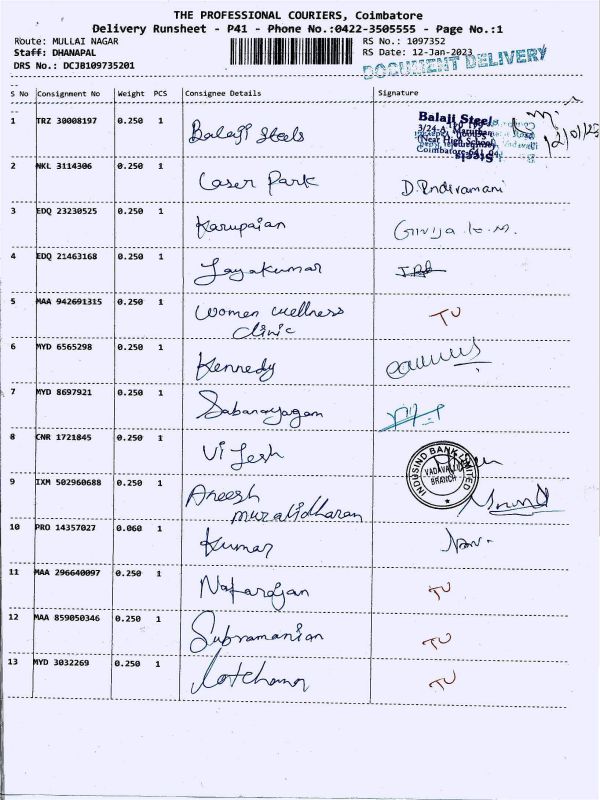 THE PROFESSIONAL COURIERS, Coimbatore
Delivery Runsheet - P41 - Phone No.:0422-3505555 - Page No.:1
Route: MULLAI NAGAR RS No.: 1097352
Staff: DHANAPAL RS Date: 12-Jan-2023
DRS No.: DCJB109735201 DOCUMENT DELIVERY
S No Consignment No Weight PCS Consignee Details Signature
1 TRZ 30008197 0.250 1 Balaji Steels
Balaji Steels
3/24-A, Marutham
Near High School
Coimbatore-641 041
12/01/23
2 NKL 3114306 0.250 1 Laser Park D.
3 EDQ 23230525 0.250 1 Karupaian Girija
4 EDQ 21463168 0.250 1 Jayakumar
5 MAA 942691315 0.250 1 Women wellness TU
clinic
6 MYD 6565298 0.250 1 Kennedy
7 MYD 8697921 0.250 1 Sabanayagam
8 CNR 1721845 0.250 1 Vijesh
INDUSIND BANK LIMITED
VADAVALLI
BRANCH
9 IXM 502960688 0.250 1 Aneesh
muralidharan
10 PRO 14357027 0.060 1 Kumar
11 MAA 296640097 0.250 1 Natarajan TU
12 MAA 859050346 0.250 1 Subramanian TU
13 MYD 3032269 0.250 1 TU